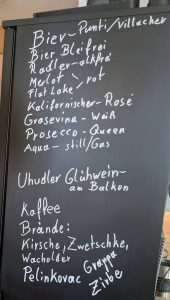 Bier - Punti/Villacher
Bier Bleifrei
Radler-alkfrei
Merlot - rot
Flat Lake / rot
Kalifornischer-Rosé
Grasevina - Weiß
Prosecco - Queen
Aqua - still/Gas
Uhudler Glühwein-
am Balkon
Kaffee
Brände:
Kirsche, Zwetschke,
Wacholder Grappa
Pelinkovac Zirbe